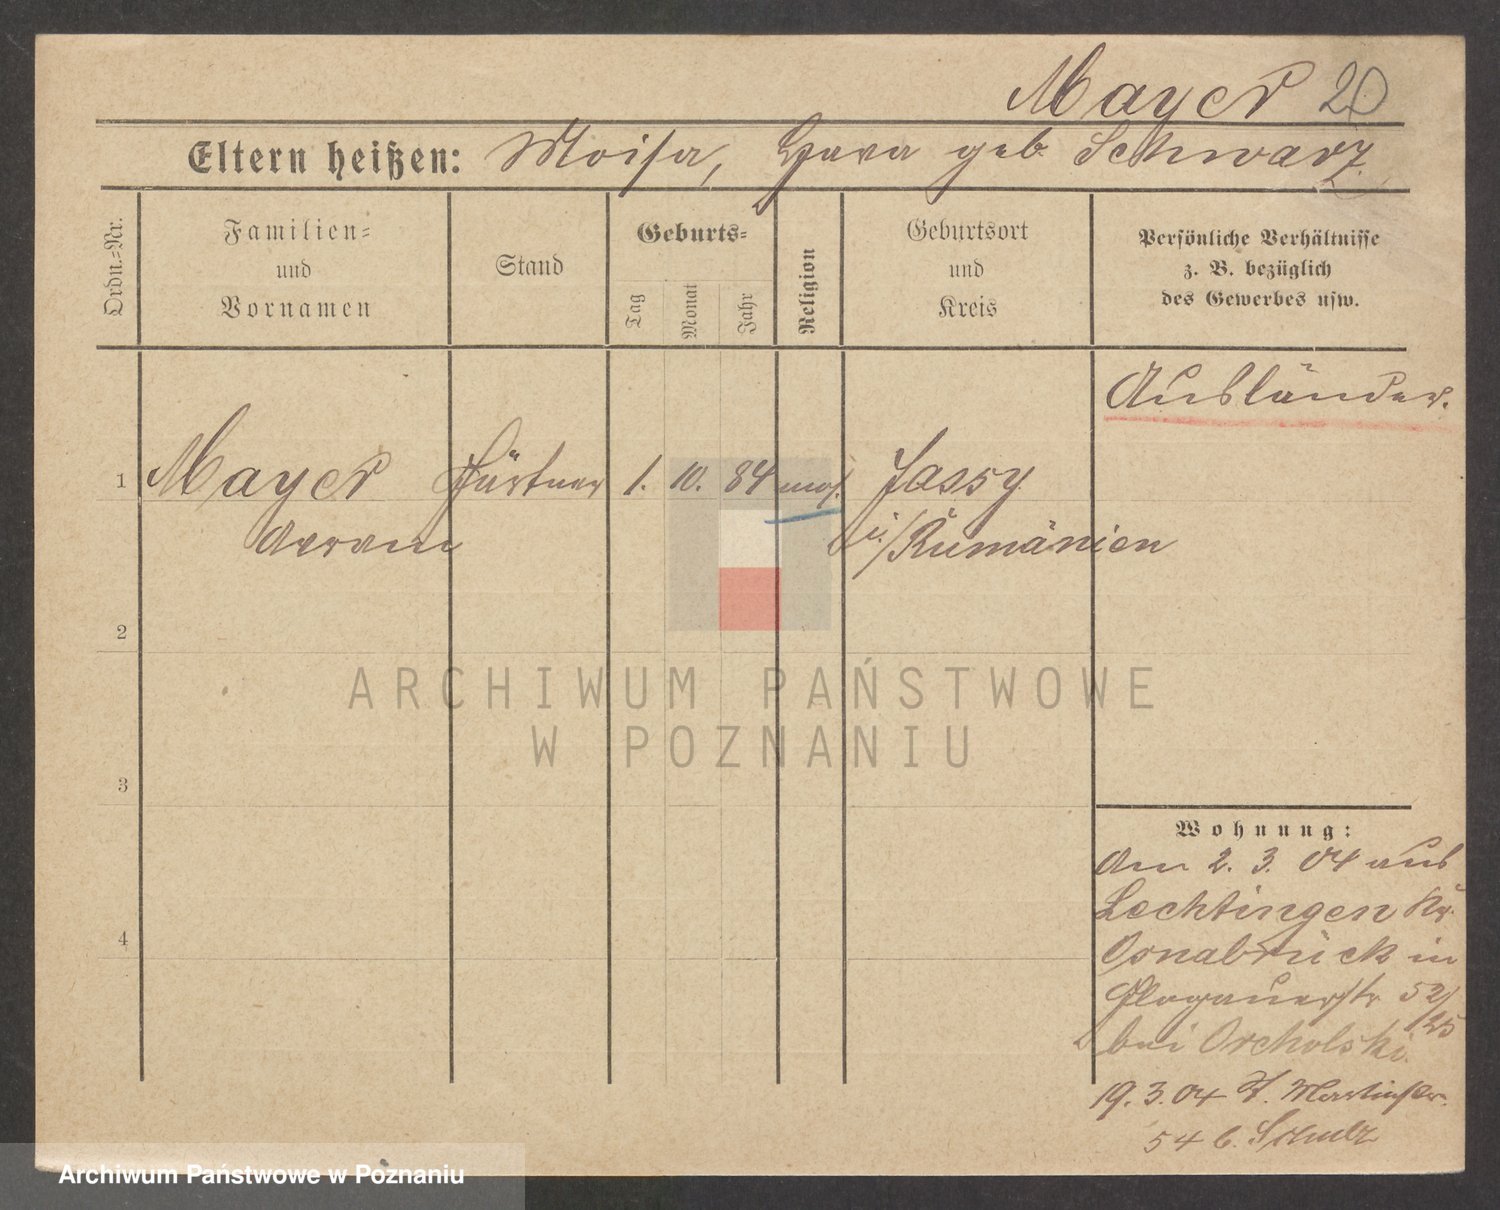 Mayer 20
Eltern heißen: Moisa, Hava geb. Schwarz.
Ordn.=Nr.
Familien=
und
Vornamen
Stand
Geburts=
Tag
Monat
Jahr
Religion
Geburtsort
und
Kreis
Persönliche Verhältnisse
z. B. bezüglich
des Gewerbes usw.
Ausländer.
1 Mayer Gärtner 1. 10. 84 mos. Jassy
Avram i./Rumänien
2
3
4
ARCHIWUM PAŃSTWOWE
W POZNANIU
Wohnung:
Am 2. 3. 04 aus
Lechtingen Kr.
Osnabrück in
Glogauerstr 52/
25
bei Orcholski.
19. 3. 04 St. Martinstr.
54 b. Schulz
Archiwum Państwowe w Poznaniu